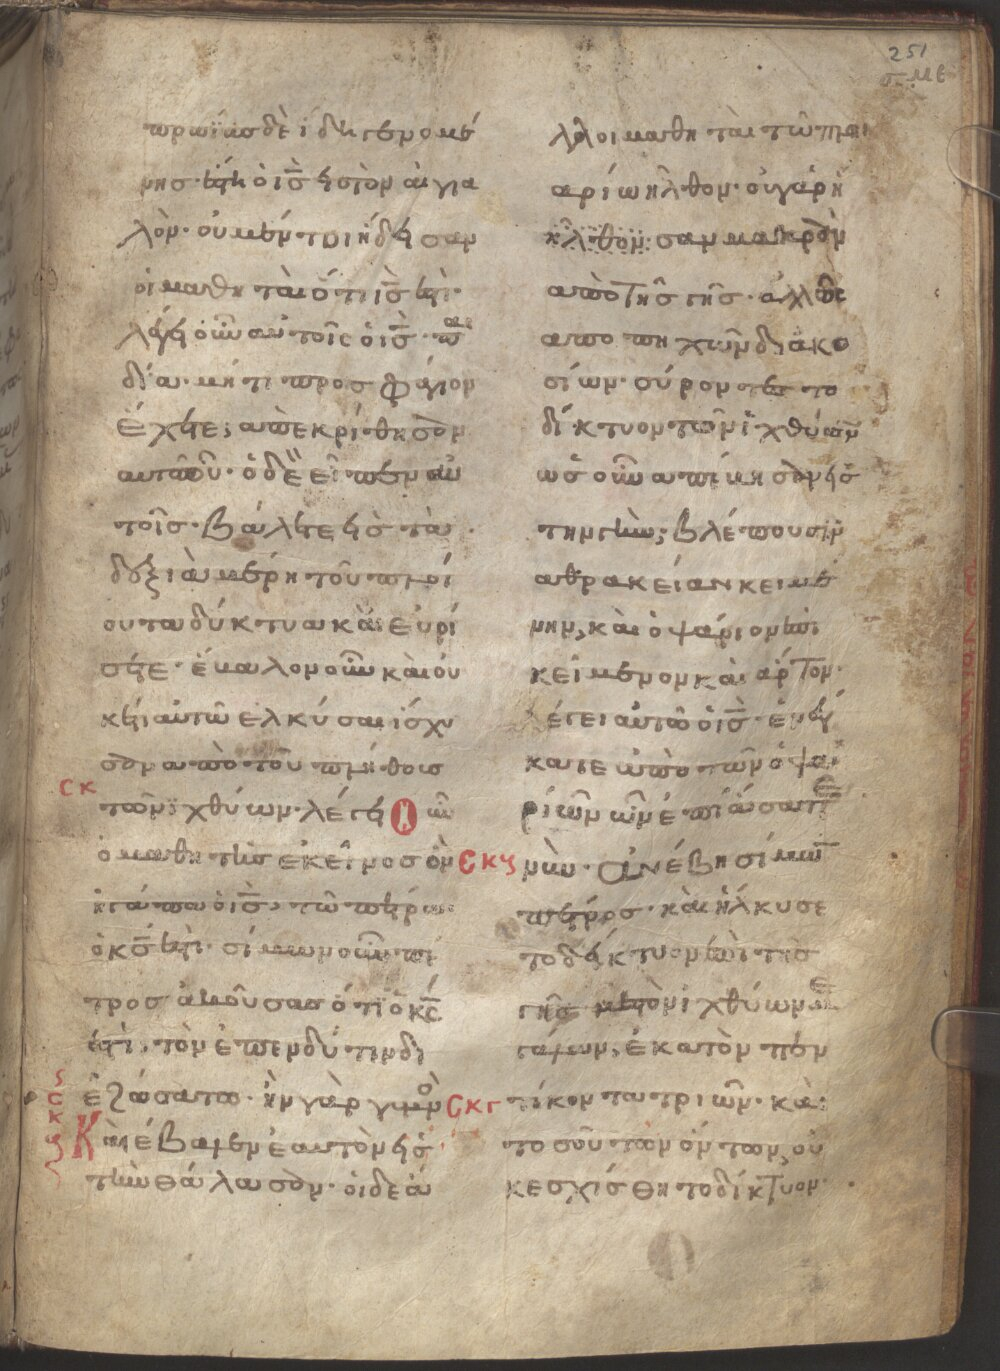 251
σ. ΜΕ
πρωϊας δὲ ἤδη γενομέ
νης. ἔστη ὁ ις̅ εἰς τὸν αἰγια
λὸν. οὐ μέντοι ἤδεισαν
οἱ μαθηταὶ ὅτι ις̅ ἐστι.
λέγει οὖν αὐτοῖς ὁ ις̅. παι
δία. μή τι προσφάγιον
ἔχετε; ἀπεκρίθησαν
αυτῶ οὔ. ὁ δὲ εἶπεν αὐ
τοῖς. βάλετε εἰς τὰ
δεξιὰ μέρη τοῦ πλοί
ου τα δίκτυα καὶ εὑρή
σετε. ἔβαλον οὖν καὶ οὐ
κέτι αὐτῶ ελκύσαι ἴσχυ
σαν ἀπὸ τοῦ πλήθους
τῶν ϊχθύων. λέγει οὖν
ὁ μαθητὴς ἐκεῖνος ὃν
ἠγάπα ὁ ις̅. τῶ πέτρω
ὁ κς̅ ἐστι. σίμων οὖν πέ
τρος ἀκούσας ὅτι ὁ κς̅
ἐστὶ. τὸν ἐπενδύτην δι
εζώσατο. ἦν γὰρ γυμνὸσ
Καὶ ἔβαλεν ἑαυτὸν εἰς
τὴν θάλασσαν. οἱ δὲ ἄ
λλοι μαθηταὶ τῶ πλοι
αρίω ἦλθον. οὐ γὰρ ἦ
ἦλθον σαν μακρὰν
ἀπὸ τῆς γῆς. ἀλλ ὡς
απο πηχῶν διακο
σίων. σύροντες το
δίκτυον τῶν ἰχθύων
ὡς οὖν απέβησαν εἰς
την γῆν; βλέπουσιν
ανθρακείαν κειμέ
νην, καὶ οψάριον ἐπι
κείμενον καὶ ἄρτον.
λέγει αὐτῶ ὁ ις̅. ἐνέγ
κατε ἀπὸ τῶν ὀψα
ρίων ὧν ἐπιάσατε
νῦν. ἀνέβη σίμων
πέτρος. καὶ ἥλκυσε
το δίκτυον ἐπὶ τῆς
γῆς μεστὸν ἰχθύων με
γάλων, ἑκατὸν πεν
τήκοντα τριῶν. καὶ
τοσούτων ὄντων, οὐ
κ ἐσχίσθη το δίκτυον.
ϹΚ
ϹΚϛ
ϹΚΓ